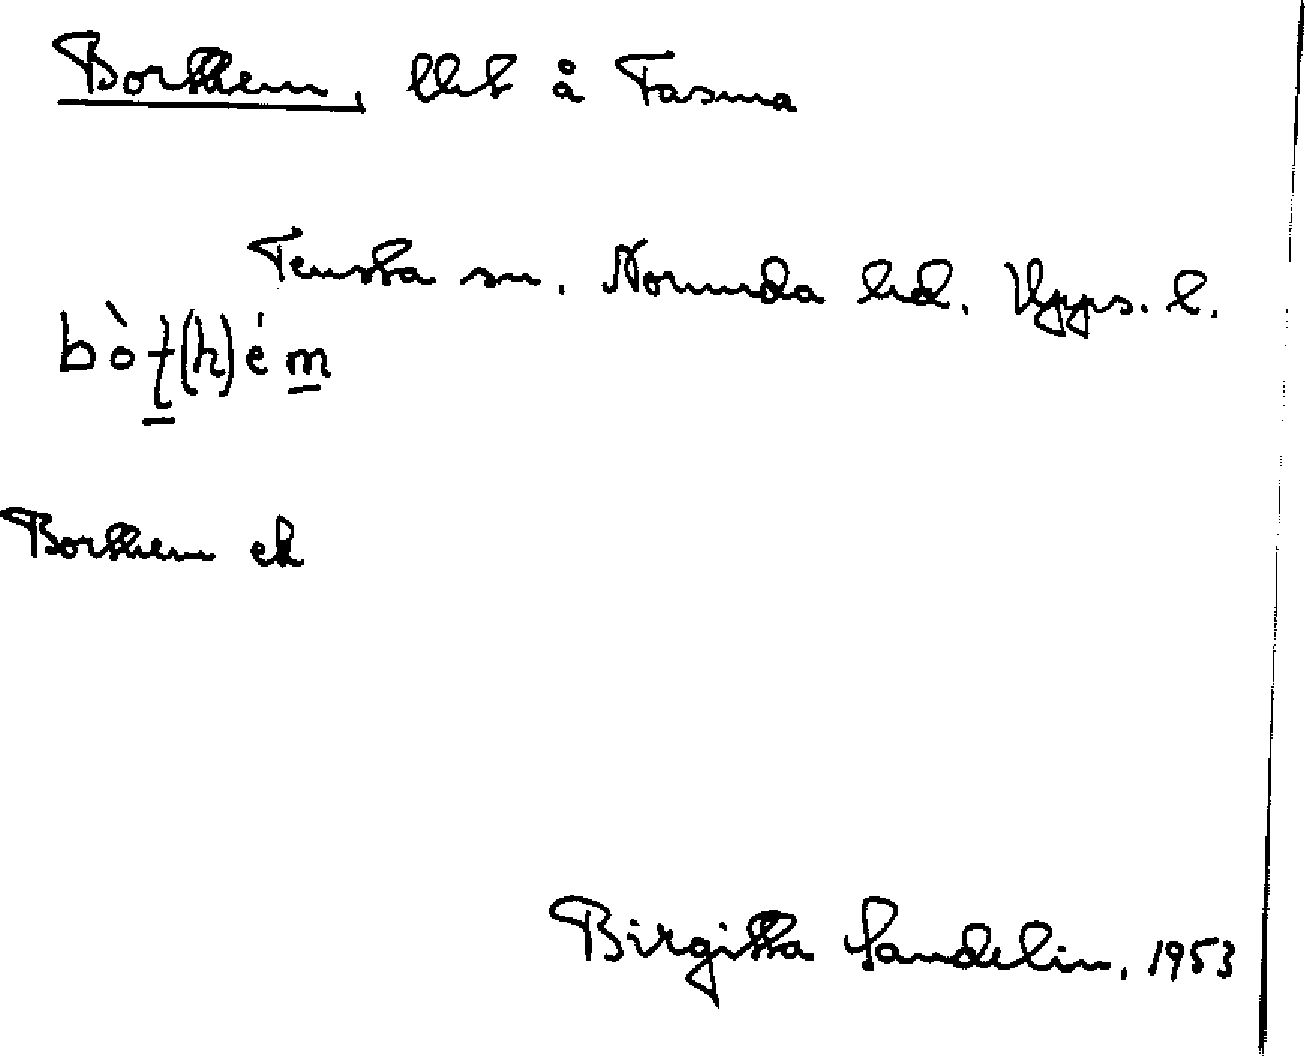 Borthem, lht å Fasma
Tensta sn. Norunda hd. Upps. l.
bò t(h)é m
Borthem ek
Birgitta Sandelin, 1953